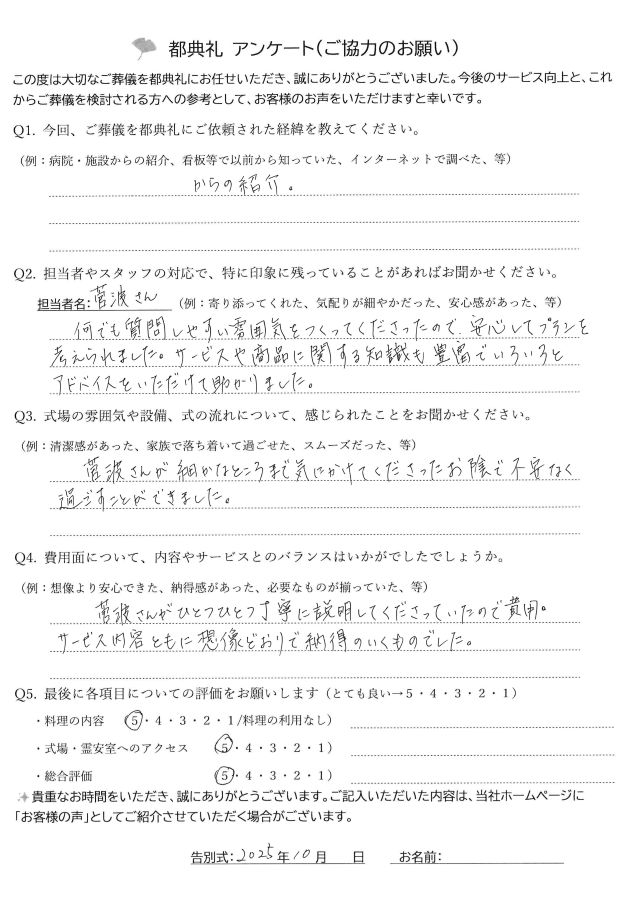 都典礼 アンケート(ご協力のお願い)
この度は大切なご葬儀を都典礼にお任せいただき、誠にありがとうございました。今後のサービス向上と、これ
からご葬儀を検討される方への参考として、お客様のお声をいただけますと幸いです。
Q1. 今回、ご葬儀を都典礼にご依頼された経緯を教えてください。
(例:病院・施設からの紹介、看板等で以前から知っていた、インターネットで調べた、等)
からの紹介。
Q2. 担当者やスタッフの対応で、特に印象に残っていることがあればお聞かせください。
担当者名:菅波さん (例:寄り添ってくれた、気配りが細やかだった、安心感があった、等)
何でも質問しやすい雰囲気をつくってくださったので、安心してプランを
考えられました。サービスや商品に関する知識も豊富でいろいろと
アドバイスをいただけて助かりました。
Q3. 式場の雰囲気や設備、式の流れについて、感じられたことをお聞かせください。
(例:清潔感があった、家族で落ち着いて過ごせた、スムーズだった、等)
菅波さんが細かなところまで気にかけてくださったお陰で不安なく
過ごすことができました。
Q4. 費用面について、内容やサービスとのバランスはいかがでしたでしょうか。
(例:想像より安心できた、納得感があった、必要なものが揃っていた、等)
菅波さんがひとつひとつ丁寧に説明してくださっていたので費用。
サービス内容ともに想像どおりで納得のいくものでした。
Q5. 最後に各項目についての評価をお願いします(とても良い→5・4・3・2・1)
・料理の内容 (5・4・3・2・1/料理の利用なし)
・式場・霊安室へのアクセス (5・4・3・2・1)
・総合評価 (5・4・3・2・1)
貴重なお時間をいただき、誠にありがとうございます。ご記入いただいた内容は、当社ホームページに
「お客様の声」としてご紹介させていただく場合がございます。
告別式:2025年10月 日 お名前: